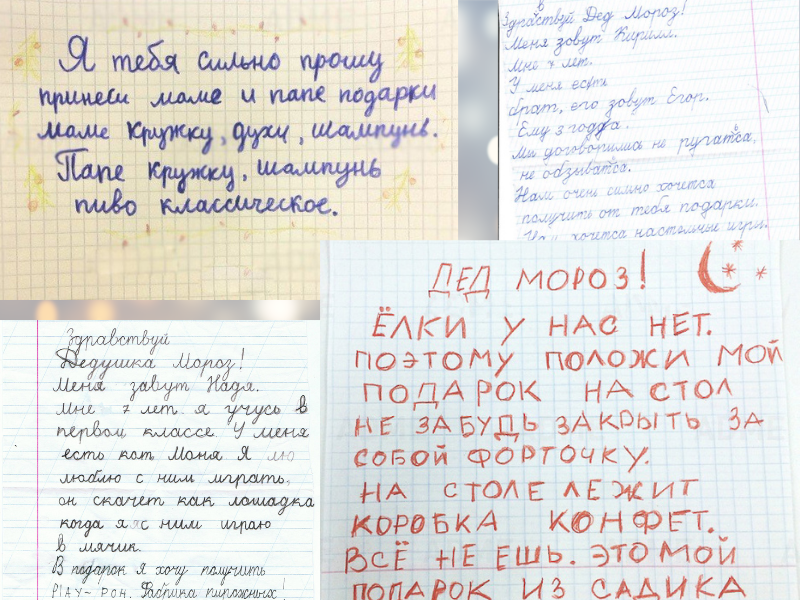 Я тебя сильно прошу
принеси маме и папе подарки
маме кружку, духи, шампунь.
Папе кружку, шампунь
пиво классическое.
Здравствуй Дед Мороз!
Меня зовут Кирилл.
Мне 7 лет.
У меня есть
брат, его зовут Егор.
Ему 3 года.
Мы договорились не ругатса,
не обзыватса.
Нам очень сильно хочетса
получить от тебя подарки.
Нам хочетса настольные игры.
Здравствуй
Дедушка Мороз!
Меня завут Надя.
Мне 7 лет. я учусь в
первом классе. У меня
есть кот Моня Я лю
люблю с ним играть,
он скачет как лошадка
когда я с ним играю
в мячик.
В подарок я хочу получить
PlAY-DOH. Фабрика пирожных!
ДЕД МОРОЗ!
ЁЛКИ У НАС НЕТ.
ПОЭТОМУ ПОЛОЖИ МОЙ
ПОДАРОК НА СТОЛ
НЕ ЗАБУДЬ ЗАКРЫТЬ ЗА
СОБОЙ ФОРТОЧКУ.
НА СТОЛЕ ЛЕЖИТ
КОРОБКА КОНФЕТ.
ВСЁ НЕ ЕШЬ. ЭТО МОЙ
ПОДАРОК ИЗ САДИКА